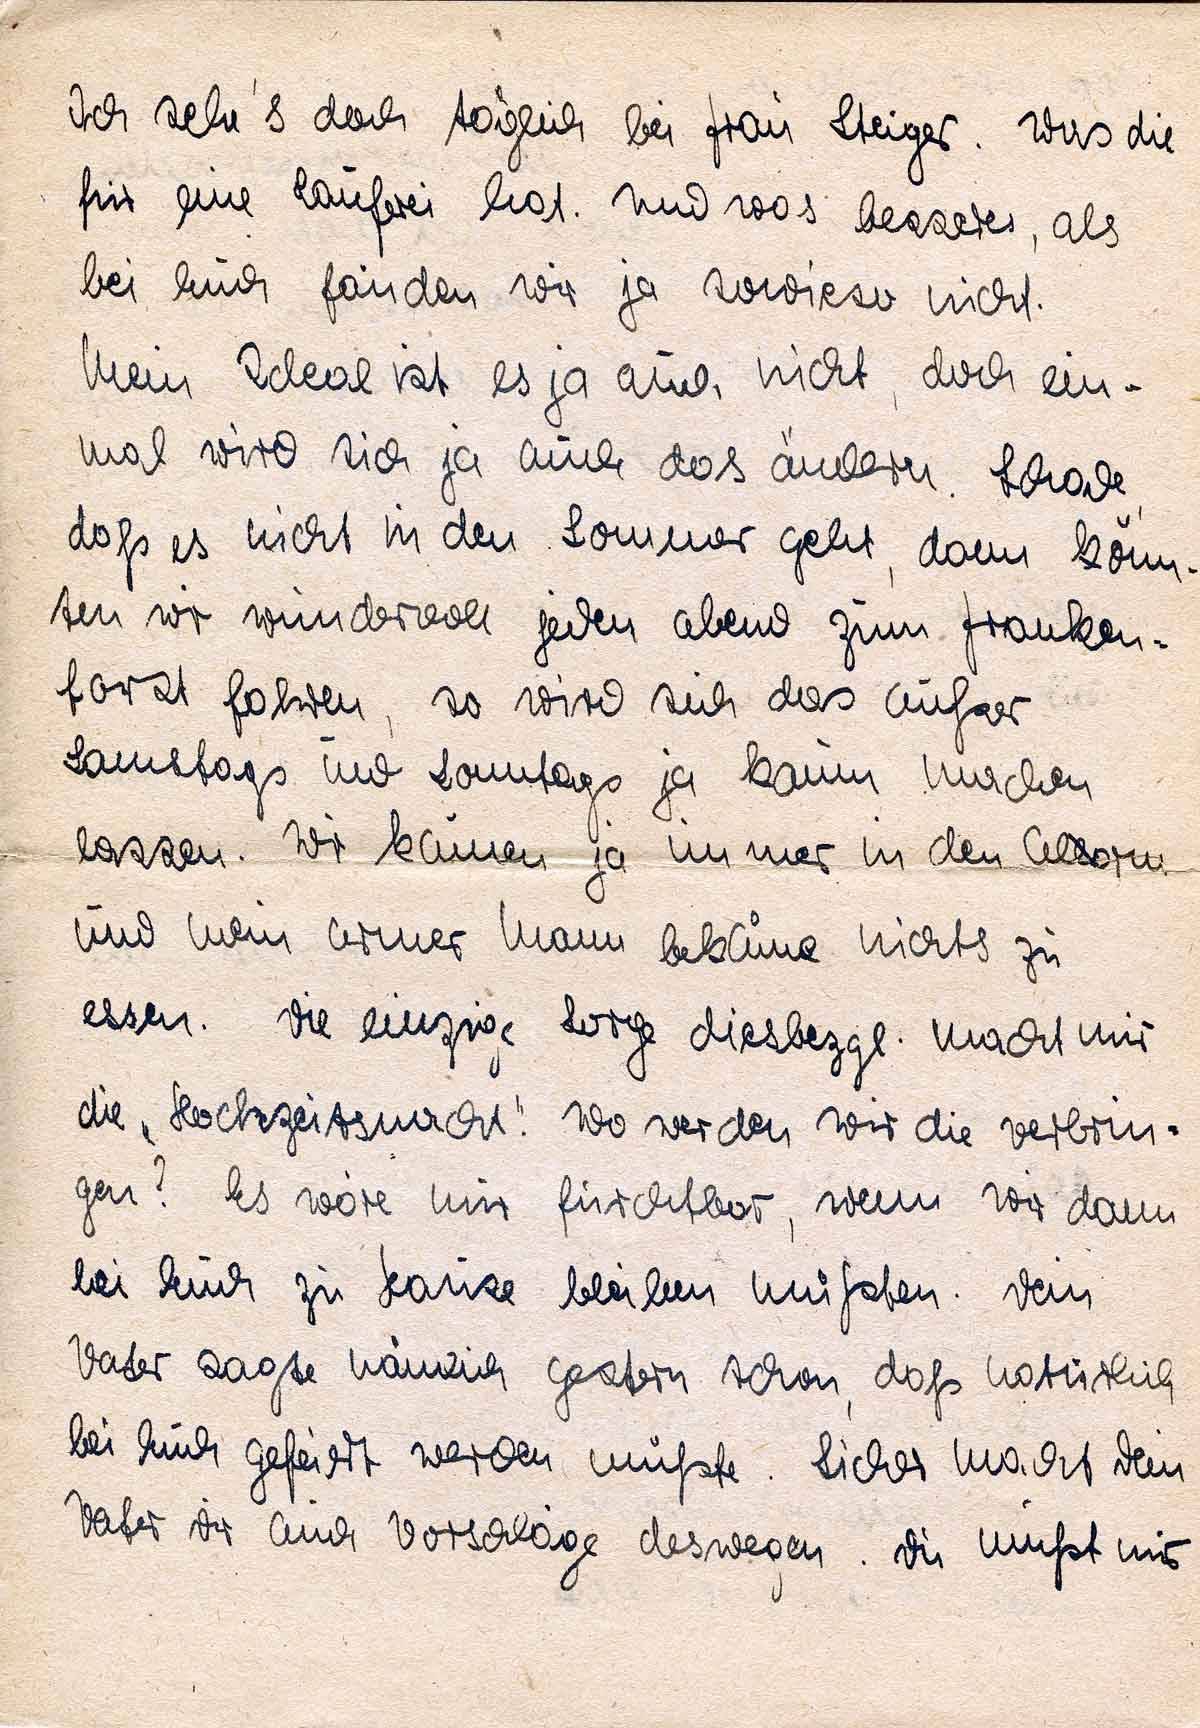 Ich sehe's doch täglich bei Frau Steiger. Was die
für eine Lauferei hat. Und was besseres, als
bei Euch fänden wir ja sowieso nicht.
Mein Ideal ist es ja auch nicht, doch ein-
mal wird sich ja auch das ändern. Schade,
daß es nicht in den Sommer geht, dann könn-
ten wir wundervoll jeden abend zum Franken-
forst fahren, so wird sich das außer
Samstags und Sonntags ja kaum machen
lassen. Wir kämen ja immer in den Alarm
und mein armer Mann bekäme nichts zu
essen. Die einzige Sorge diesbezgl. macht mir
die „Hochzeitsnacht". Wo werden wir die verbrin-
gen? Es wäre mir furchtbar, wenn wir dann
bei Euch zu Hause bleiben müßten. Dein
Vater sagte nämlich gestern schon, daß natürlich
bei Euch gefeiert werden müßte. Sicher macht Dein
Vater Dir auch Vorschläge deswegen. Du mußt mir